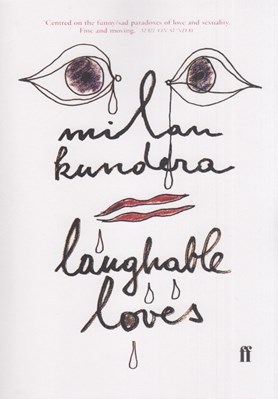 'Centred on the funny/sad paradoxes of love and sexuality.
Fine and moving.'
milan
kundera
laughable
loves
ff